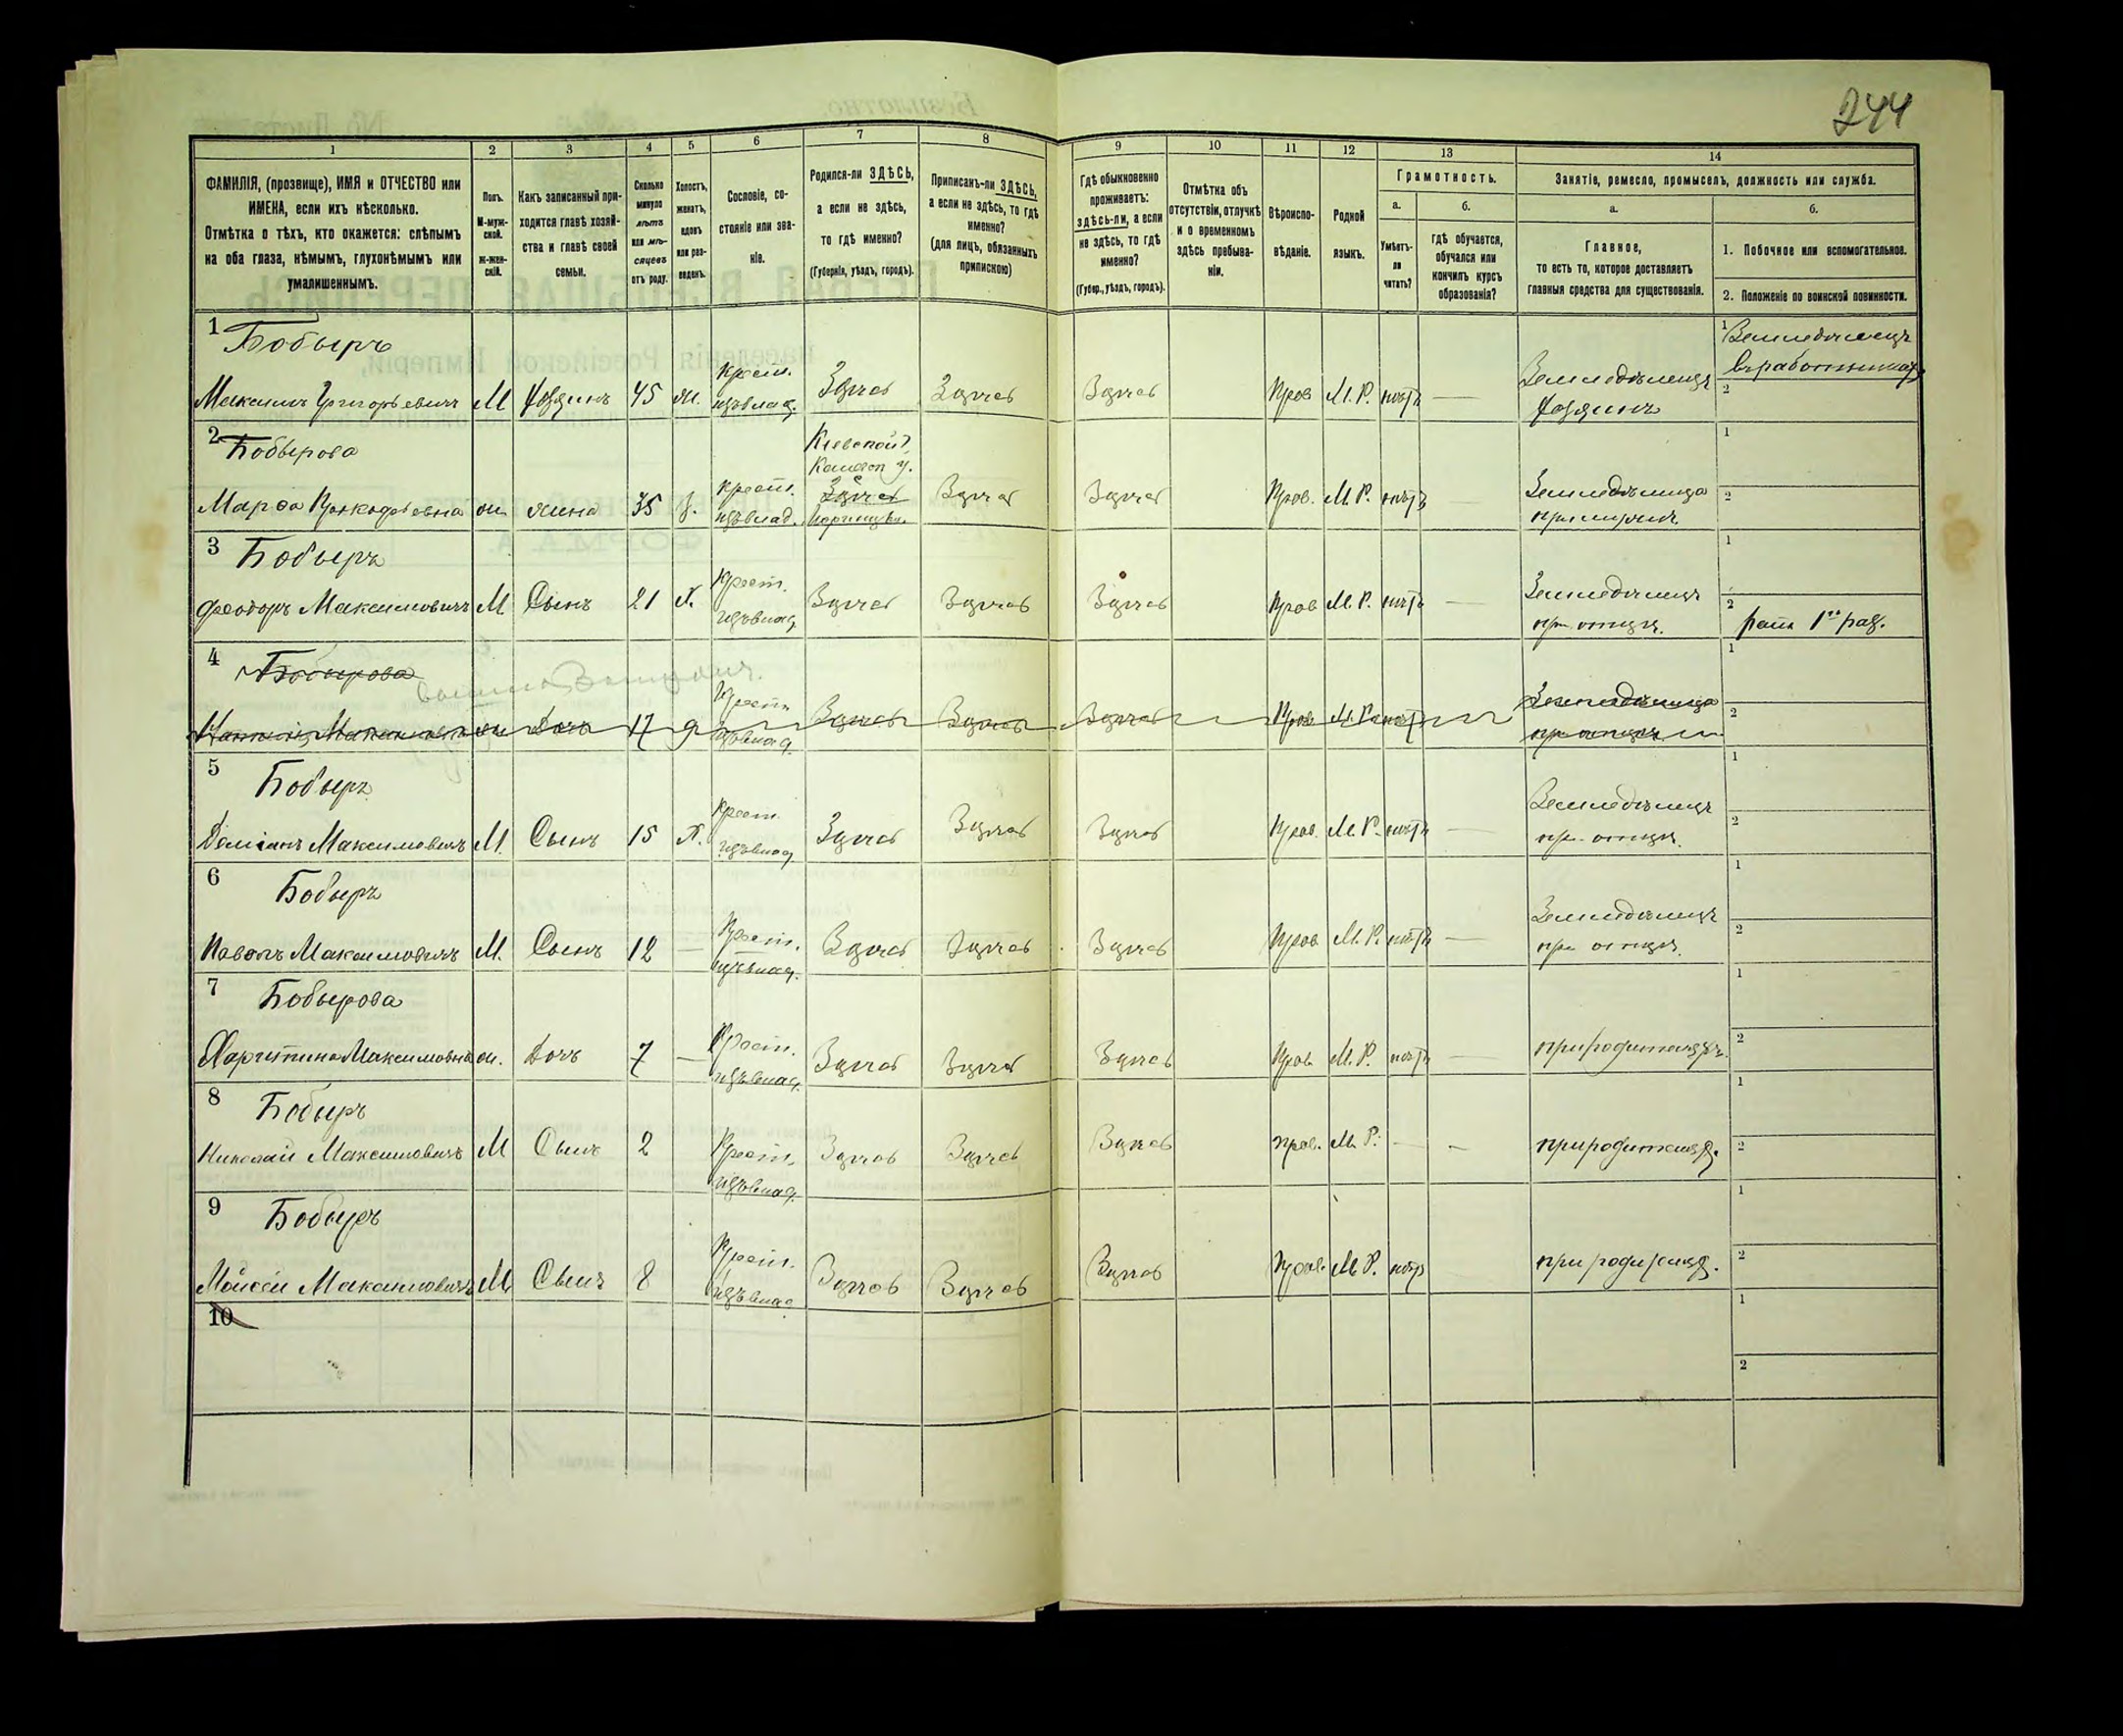 244
1 2 3 4 5 6 7 8 9 10 11 12 13 14
ФАМИЛІЯ, (прозвище), ИМЯ и ОТЧЕСТВО или
ИМЕНА, если ихъ нѣсколько.
Отмѣтка о тѣхъ, кто окажется: слѣпымъ
на оба глаза, нѣмымъ, глухонѣмымъ или
умалишеннымъ.
Полъ.
М-муж-
ской.
Ж-жен-
скій.
Какъ записанный при-
ходится главѣ хозяй-
ства и главѣ своей
семьи.
Сколько
минуло
лѣтъ
или мѣ-
сяцевъ
отъ роду.
Холостъ,
женатъ,
вдовъ
или раз-
веденъ.
Сословіе, со-
стояніе или зва-
ніе.
Родился-ли ЗДѢСЬ,
а если не здѣсь,
то гдѣ именно?
(Губернія, уѣздъ, городъ).
Приписанъ-ли ЗДѢСЬ,
а если не здѣсь, то гдѣ
именно?
(для лицъ, обязанныхъ
припискою)
Гдѣ обыкновенно
проживаетъ:
здѣсь-ли, а если
не здѣсь, то гдѣ
именно?
(Губер., уѣздъ, городъ).
Отмѣтка объ
отсутствіи, отлучкѣ
и о временномъ
здѣсь пребыва-
ніи.
Вѣроиспо-
вѣданіе.
Родной
языкъ.
Грамотность.
а.
Умѣетъ-
ли
читать?
б.
гдѣ обучается,
обучался или
кончилъ курсъ
образованія?
Занятіе, ремесло, промыселъ, должность или служба.
а.
Главное,
то есть то, которое доставляетъ
главныя средства для существованія.
б.
1. Побочное или вспомогательное.
2. Положеніе по воинской повинности.
1 Бобырь
Максимъ Григорьевичъ М Хозяинъ 45 ж. Крест. Здѣсь Здѣсь Здѣсь Прав М.Р. нѣтъ —
Земледѣлецъ
Хозяинъ
1 Земледѣлецъ
2
2 Бобырова
Киевской г.
Марфа ж жена 35 з. Крест. Здѣсь Здѣсь Здѣсь Прав. М.Р. нѣтъ
1
2
3 Бобырь
Феодоръ Максимовичъ М Сынъ 21 Х. Крест. Здѣсь Здѣсь Здѣсь Прав М.Р. нѣтъ —
Земледѣлецъ
при отцѣ.
1
2 1го раз.
4 Бобырова
ж Дочь 17 Крест. Здѣсь Здѣсь Здѣсь Прав М.Р. нѣтъ
1
2
5 Бобырь
Деміанъ Максимовичъ М. Сынъ 15 Х. Крест. Здѣсь Здѣсь Здѣсь Прав. М.Р. нѣтъ —
Земледѣлецъ
при отцѣ.
1
2
6 Бобырь
Павелъ Максимовичъ М. Сынъ 12 — Крест. Здѣсь Здѣсь Здѣсь Прав М.Р. нѣтъ —
Земледѣлецъ
при отцѣ.
1
2
7 Бобырова
Харитина Максимовна ж. Дочь 7 — Крест. Здѣсь Здѣсь Здѣсь Прав М.Р. нѣтъ —
при родителяхъ.
1
2
8 Бобырь
Николай Максимовичъ М Сынъ 2 Крест. Здѣсь Здѣсь Здѣсь прав. М.Р. — —
при родителях.
1
2
9 Бобырь
Моисей Максимовичъ М Сынъ 8 Крест. Здѣсь Здѣсь Здѣсь Прав. М.Р. нѣтъ
1
2
10
1
2